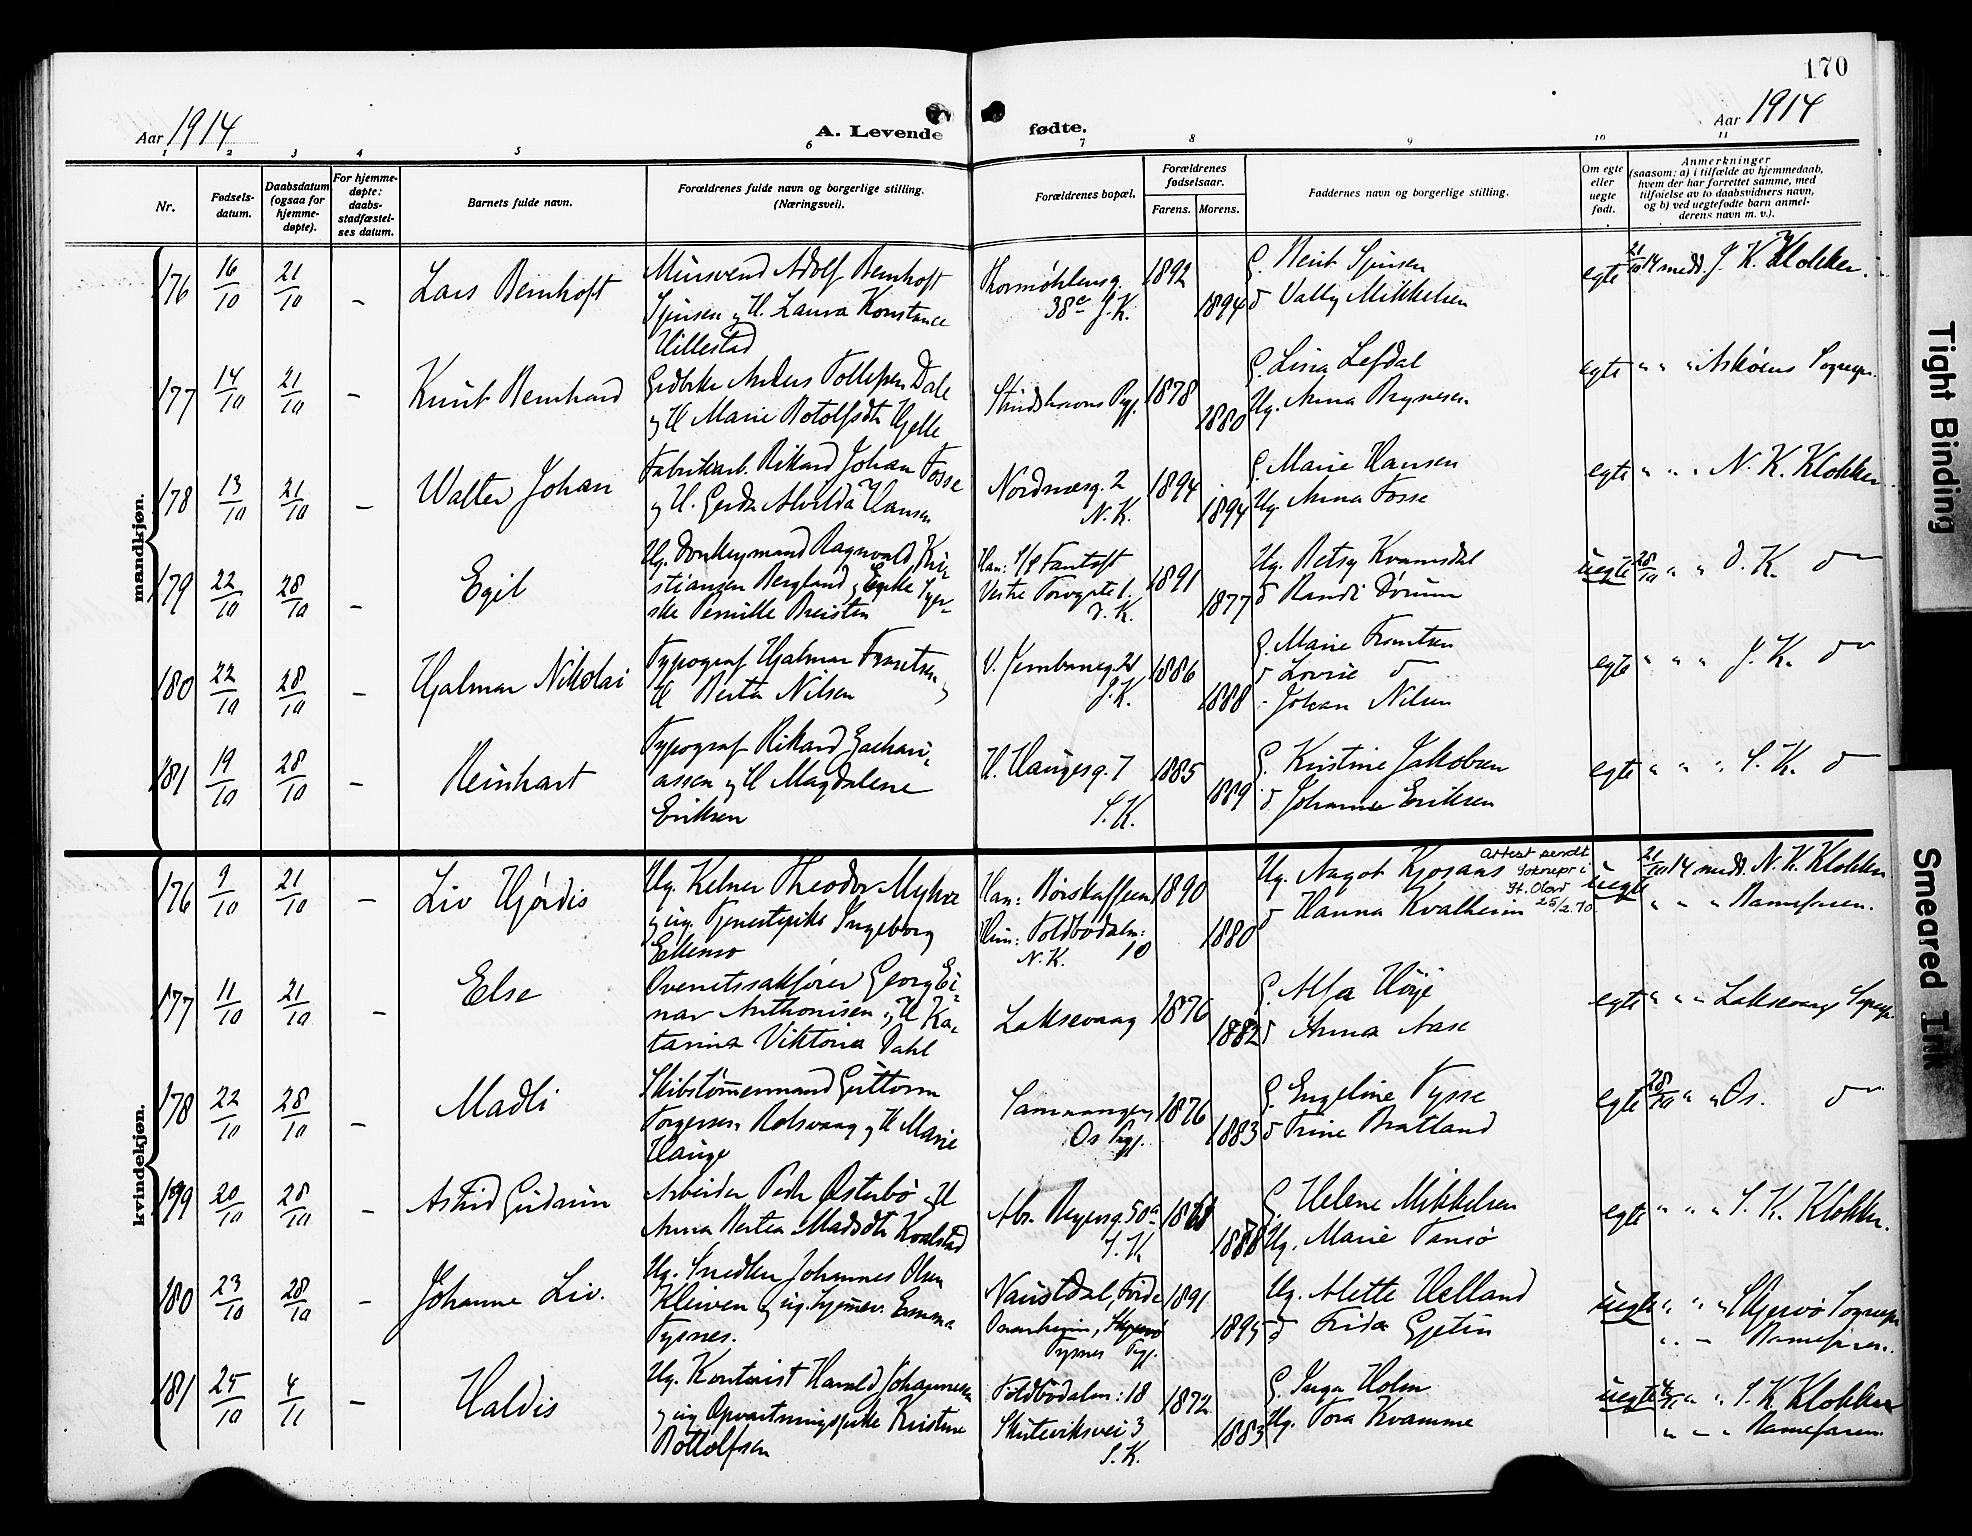 170
Aar 1914
A. Levende fødte.
Aar 1914
1 2 3 4 5 6 7 8 9 10 11
Nr.
Fødsels-
datum.
Daabsdatum
(ogsaa for
hjemme-
døpte).
For hjemme-
døpte:
daabs-
stadfæstel-
ses datum.
Barnets fulde navn.
Forældrenes fulde navn og borgerlige stilling.
(Næringsvei).
Forældrenes bopæl.
Forældrenes
fødselsaar.
Farens. Morens.
Faddernes navn og borgerlige stilling.
Om egte
eller
uegte
født.
Anmerkninger
(saasom: a) i tilfælde av hjemmedaab,
hvem der har forrettet samme, med
tilføielse av to daabsvidners navn,
og b) ved uegtefødte barn anmel-
derens navn m. v.).
mandkjøn.
176 16/10 21/10 – Lars Bernhoft
Mursvend Adolf Bernhoft
Sjursen og H. Laura Konstance
Villestad
Thormøhlensg.
38c J.K.
1892
1894
G. Berit Sjursen
d Valby Mikkelsen
egte 21/10 14 medd. J. K. Klokker.
177 14/10 21/10 – Knut Bernhard
Grdbrker Anders Tollefsen Dale
og H Marie Botolfsdtr Hjelle
1878
1880
G. Lina Lefdal
Ug. Anna Brynesen
egte " " " Askøens Sognepr.
178 13/10 21/10 – Walter Johan
Fabrikarb. Rikard Johan Fosse
og H. Gerda Alvilda Hansen
Nordnæsg. 2
N.K.
1894
1894
G. Marie Hansen
Ug. Anna Fosse
egte " " " N. K. Klokker
179 22/10 28/10 – Egil
Ug. Donkeymand Ragnvald Kri-
stiansen Bergland og Enke Syer-
ske Pernille Breisten
Han: S/S Fantoft
Vestre Torvgate 1.
D.K.
1891
1877
Ug. Betsy Kvamsdal
d Randi Dørum
uegte 28/10 " " D. K. do
180 22/10 28/10 – Hjalmar Nikolai
Typograf Hjalmar Frantsen og
H Berta Nilsen
J.K.
1886
1888
G. Marie Frantsen
d Lovise do
- Johan Nilsen
egte " " " J. K. do
181 19/10 28/10 – Reinhart
Typograf Rikard Zachari-
assen og H Magdalene
Eriksen
H. Haugesg. 7
S.K.
1885
1889
G. Kristine Jakobsen
d Johanne Eriksen
egte " " " S. K. do
kvindekjøn.
176 9/10 21/10 – Liv Hjørdis
Ug. Kelner Theodor Myhre
og ug. Tjenestepike Ingeborg
Ekemo
Han: Børskaffeen
Hun: Toldbodalm:
N.K. 10
1890
1880
Ug. Aagot Kjosaas
d Hanna Kvalheim
Attest sendt
Soknepr i
St. Olav
25/2.70.
uegte 21/10 14 medd. N. K. Klokker.
" " " Barnefaren.
177 11/10 21/10 – Else
Overretssakfører Georg Ei-
nar Anthonisen og H Ka-
tarina Viktoria Dahl
Laksevaag
1876
1882
G. Alfa Høye
d Anna Aase
egte " " " Laksevaag Sognepr.
178 22/10 28/10 – Madli
Skibstømmermand Guttorm
Torgersen Rolsvaag og H Marie
Hauge
Samnanger,
Os Pgj.
1876
1883
G. Engeline Tysse
d Trine Bratland
egte 28/10 " " Os. do
179 20/10 28/10 – Astrid Gudrun
Arbeider Peder Østerbø og H
Anna Bertea Madsdtr Kvalstad
Abs. Beyersg. 50a
S.K
1888
G. Helene Mikkelsen
Ug. Marie Fansø
egte " " " S. K. Klokker.
180 23/10 28/10 – Johanne Liv.
Ug. Snedker Johannes Olsen
Kleiven og ug. Emma
Tysnes.
Naustdal, Førde
Tysnes Pgj.
1891
1895
Ug. Alette Helland
d Frida Gjetin
uegte " " " Skjervø Sognepr
" " – Barnefaren.
181 25/10 4/11 – Haldis
Ug. Kontorist Harald Johannesen
og ug Opvartningspike Kristine
Bottolfsen
Toldbodalm: 18
Skuteviksvei 3
S.K.
1872
1883
G. Inga Holm
Ug. Tora Kvamme
uegte 4/11 " " S. K. Klokker
" – " Barnefaren.
Tight Binding
Smeared Ink